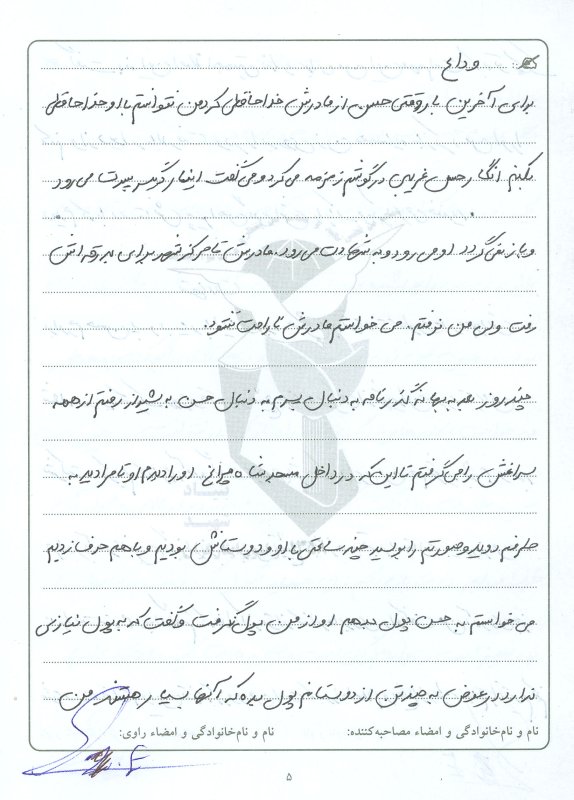 وداع
برای آخرین بار وقتی حسن از مادرش خداحافظی کرد من نتوانستم با او خداحافظی
بکنم انگار حس غریبی در گوشم زمزمه می کرد و می گفت اینبار اگر پسرت می رود
و باز نمی گردد او می رود و به شهادت می رسد. مادرش تا مرکز شهر برای بدرقه اش
رفت ولی من نرفتم. می خواستم مادرش ناراحت نشود.
چند روز بعد به بهانه گذرنامه به دنبال پسرم به دنبال حسن به شیراز رفتم از همه
سراغش را می گرفتم تا این که در داخل مسجد شاه چراغ او را دیدم او تا مرا دید به
طرفم دوید و صورتم را بوسید چند ساعتی با او و دوستانش بودیم و با هم حرف زدیم
می خواستم به حسن پول بدهم او از من پول نگرفت و گفت که به پول نیازی
ندارد در عوض به چند تن از دوستانم پول بده که آنها بسیار هستند من
نام و نام‌خانوادگی و امضاء مصاحبه‌کننده: نام و نام‌خانوادگی و امضاء راوی:
۵